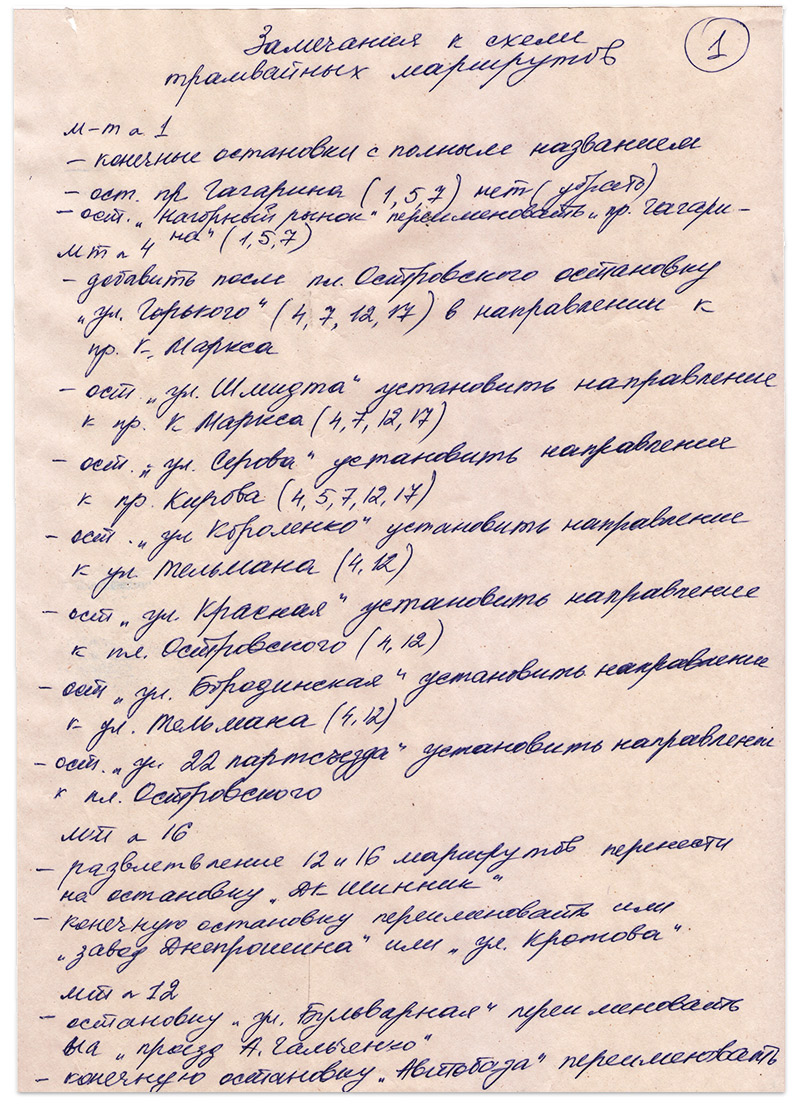 Замечания к схеме
трамвайных маршрутов
1
м-т ~ 1
– конечные остановки с полным названием
– ост. пр Гагарина (1,5,7) нет (убрать)
– ост. „Нагорный рынок" переименовать „пр. Гагари-
на" (1,5,7)
мт ~ 4
– добавить после пл. Островского остановку
„ул. Горького" (4,7,12,17) в направлении к
пр. К. Маркса
– ост. „ул. Шмидта" установить направление
к пр. К Маркса (4,7,12,17)
– ост. „ул. Серова" установить направление
к пр. Кирова (4,5,7,12,17)
– ост. „ул Короленко" установить направление
к ул Тельмана (4,12)
– ост „ул. Красная" установить направление
к пл. Островского (4,12)
– ост „ул. Бородинская" установить направление
к ул. Тельмана (4,12)
– ост. „ул 22 партсъезда" установить направлени
к пл. Островского
мт ~ 16
– разветвление 12 и 16 маршрутов перенести
на остановку „ДК Шинник"
– конечную остановку переименовать или
„завод Днепрошина" или „ул. Кротова"
мт ~ 12
– остановку „ул. Бульварная" переименовать
на „проезд А. Гальченко"
– конечную остановку „Автобаза" переименовать